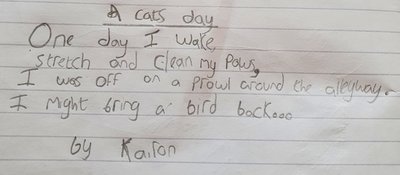 A cats day
One day I wake
stretch and clean my paws,
I was off on a prowl around the alleyway.
I might bring a bird back...
by Kairon